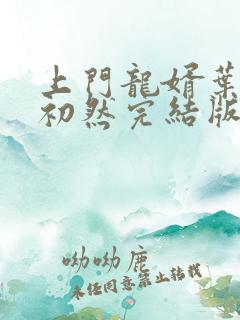 上門龍婿葉
初然完結版
呦呦鹿
未任同意禁止转载